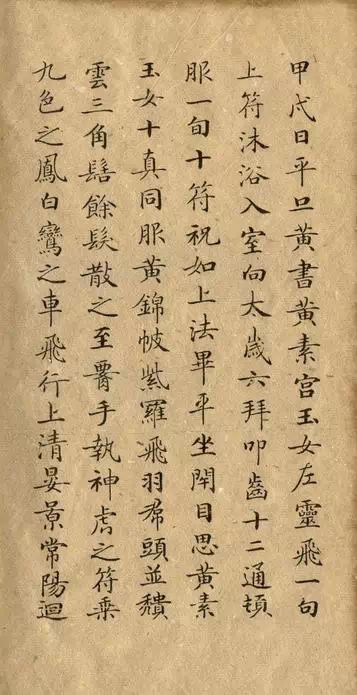 甲戌日平旦黃書黃素宮玉女左靈飛一旬
上符沐浴入室向太歲六拜叩齒十二通頓
服一旬十符祝如上法畢平坐閉目思黃素
玉女十真同服黃錦帔紫羅飛羽帬頭並頽
雲三角髻餘髮散之至腰手執神虎之符乗
九色之鳳白鸞之車飛行上清晏景常陽迴